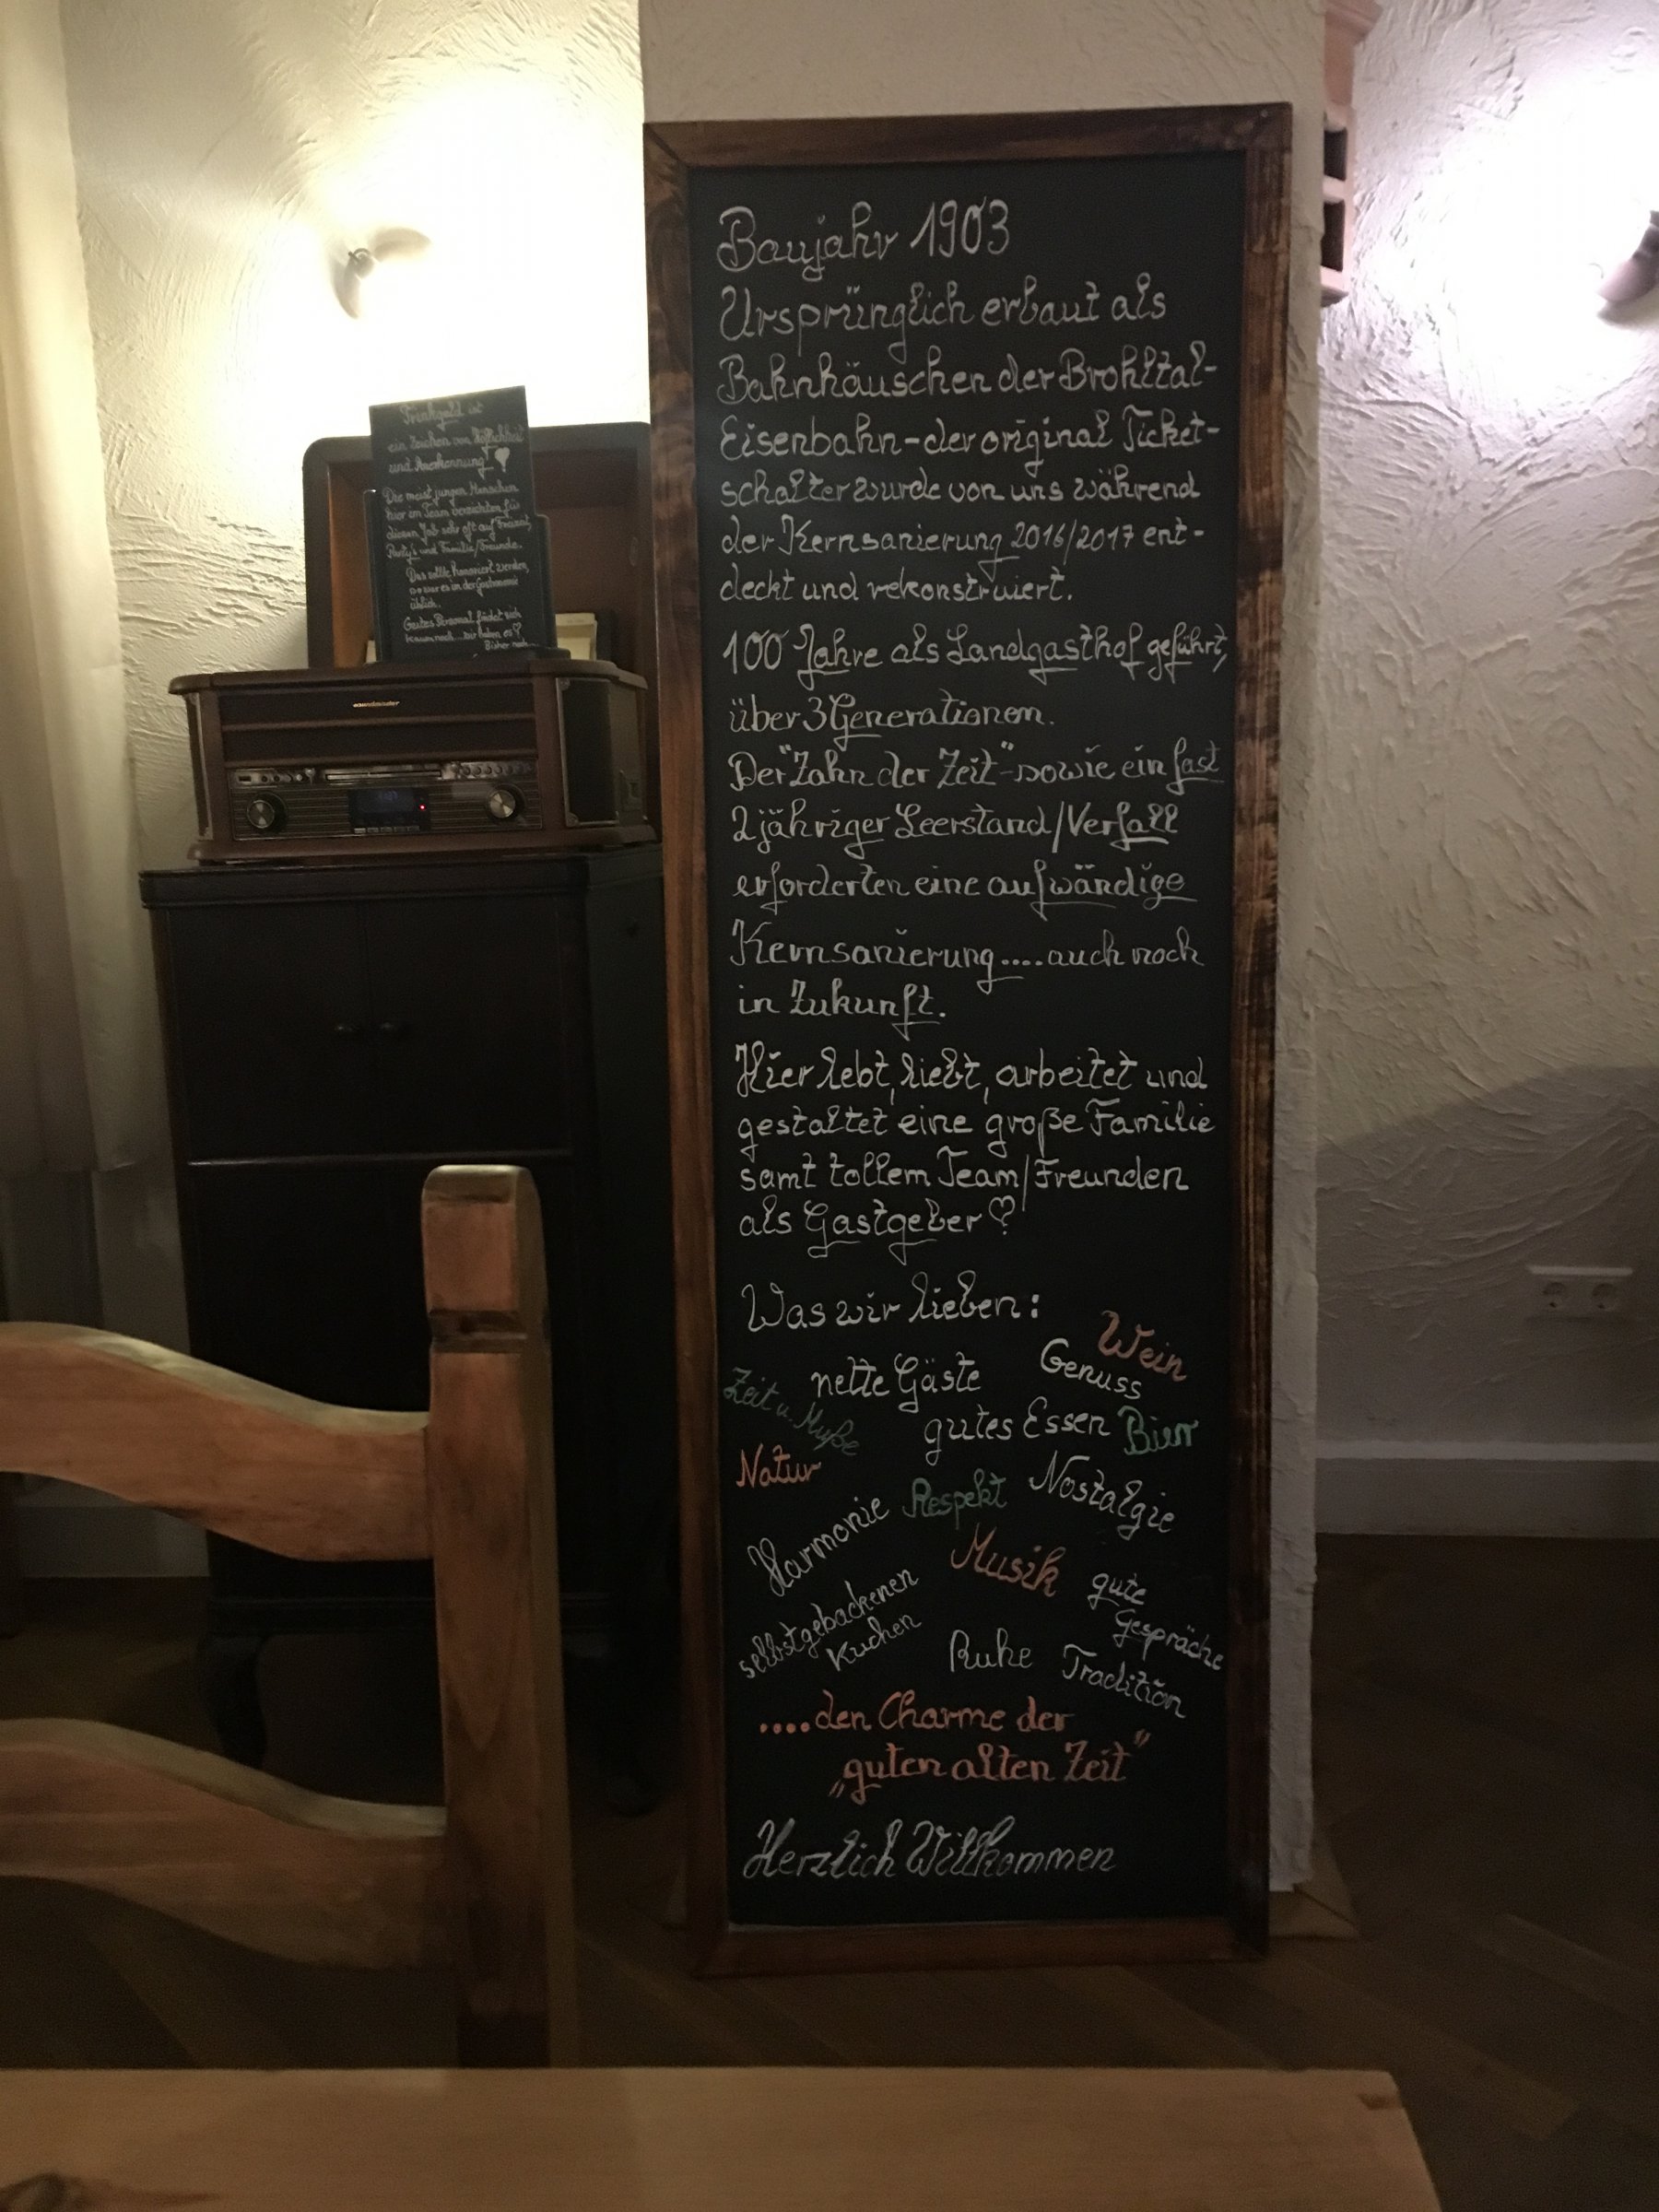 Baujahr 1903
Ursprünglich erbaut als
Bahnhäuschen der Brohltal-
Eisenbahn - der original Ticket-
schalter wurde von uns während
der Kernsanierung 2016/2017 ent-
deckt und rekonstruiert.
100 Jahre als Landgasthof geführt,
über 3 Generationen.
Der "Zahn der Zeit" - sowie ein fast
2 jähriger Leerstand/Verfall
erforderten eine aufwändige
Kernsanierung....auch noch
in Zukunft.
Hier lebt, liebt, arbeitet und
gestaltet eine große Familie
samt tollem Team/Freunden
als Gastgeber ♡
Was wir lieben:
Wein
nette Gäste
Genuss
Zeit u. Muße
gutes Essen
Bier
Natur
Respekt
Nostalgie
Harmonie
Musik
gute
Gespräche
selbstgebackenen
Kuchen
Ruhe
Tradition
....den Charme der
„guten alten Zeit"
Herzlich Willkommen
Trinkgeld ist
ein Zeichen von Höflichkeit
und Anerkennung ♥
Die meist jungen Menschen
hier im Team verzichten für
diesen Job sehr oft auf Freizeit,
Party's und Familie/Freunde.
Das sollte honoriert werden,
so war es in der Gastronomie
üblich.
Gutes Personal findet sich
kaum noch...wir haben es ♡
Bisher noch
soundmaster